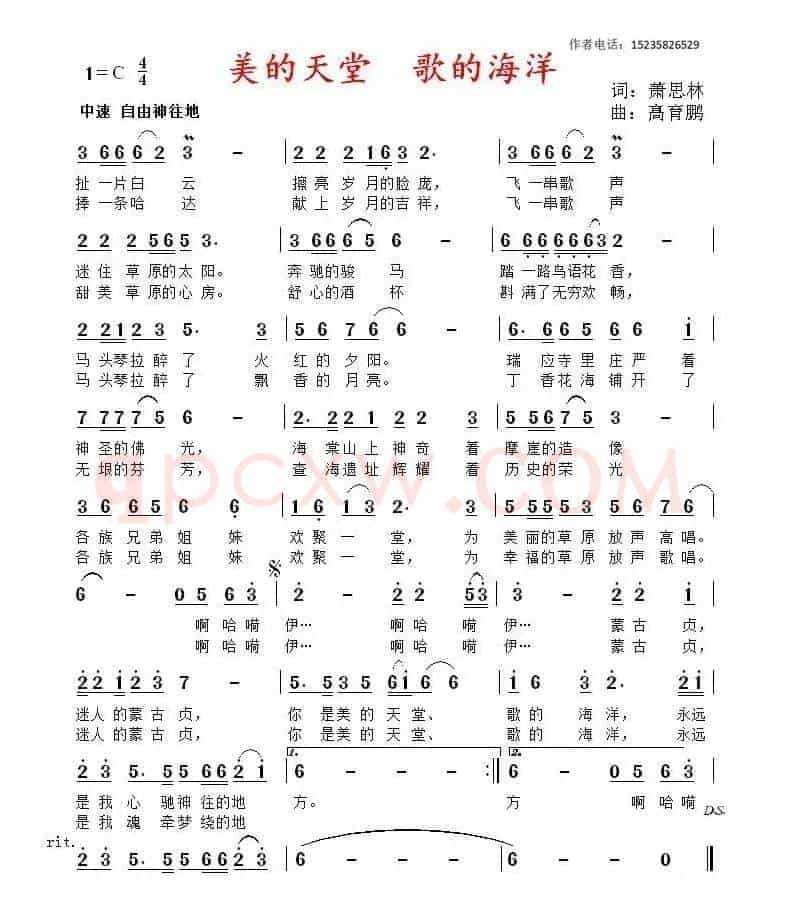 作者电话：15235826529
1=C 4/4
美的天堂 歌的海洋
词：萧思林
中速 自由神往地
曲：髙育鹏
3 6 6 6 2 3 - | 2 2 2 1 6 2. | 3 6 6 6 2 3 - |
扯一片白 云 擦亮岁月的脸庞， 飞一串歌 声
捧一条哈 达 献上岁月的吉祥， 飞一串歌 声
2 2 2 5 6 5 3. | 3 6 6 6 5 6 - | 6 6 6 6 6 6 6 3 2 - |
迷住草原的太阳。 奔驰的骏 马 踏一路鸟语花香，
甜美草原的心房。 舒心的酒 杯 斟满了无穷欢畅，
2 2 2 1 2 3 5. 3 | 5 5 6 7 6 6 - | 6. 6 5 6 6 1 |
马头琴拉醉了 火 红的夕阳。 瑞应寺里庄严着
马头琴拉醉了 飘 香的月亮。 丁香花海铺开了
7 7 7 7 7 5 6 - | 2. 2 2 1 2 2 3 | 5 5 5 3 5 7 5 |
神圣的佛 光， 海棠山上神奇着 摩崖的造像
无垠的芬 芳， 查海遗址辉耀着 历史的荣光
3 6 6 6 6 6 6 | 1 6 1 3 2. 3 | 5 5 5 5 5 3 5 6 7 6 |
各族兄弟姐 妹 欢聚一 堂， 为 美丽的草原放声高唱。
各族兄弟姐 妹 欢聚一 堂， 为 幸福的草原放声歌唱。
6 - 0 5 6 3 | 2 - 2 2 5 3 | 2 - 2 6 3 |
啊哈嗬 伊… 啊哈嗬 伊… 蒙古贞，
啊哈嗬 伊… 啊哈嗬 伊… 蒙古贞，
2 2 1 2 3 7 - | 5. 5 3 5 6 1 6 6 | 3 6 3 2. 2 3 |
迷人的蒙古贞， 你是美的天堂、 歌的海洋，永远
迷人的蒙古贞， 你是美的天堂、 歌的海洋，永远
1. 2.
2 3 5. 5 5 6 6 2 1 | 6 - - - :| 6 - 0 5 6 3 |
是我心 驰神往的地 方。 方 啊哈嗬
是我魂 牵梦绕的地
D.S.
rit.
2 3 5. 5 5 6 6 2 3 | 6 - - - | 6 - - 0 ‖
qpcxw.COM